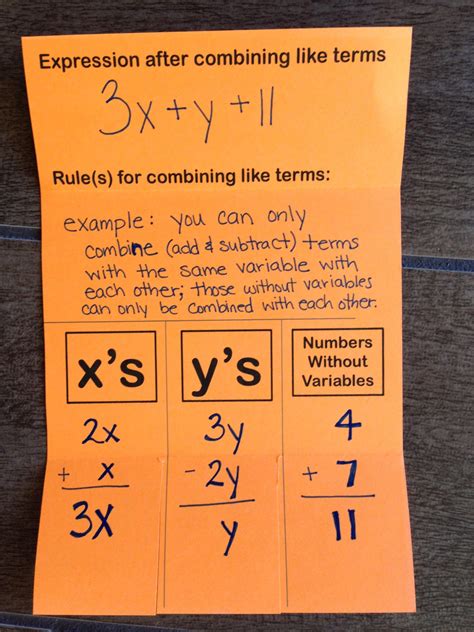 Expression after combining like terms
3x + y + 11
Rule(s) for combining like terms:
example: you can only
combine (add & subtract) terms
with the same variable with
each other; those without variables
can only be combined with each other.
x's y's Numbers Without Variables
2x 3y 4
+ x - 2y + 7
3x y 11